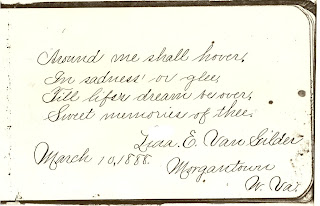 Around me shall hover,
In sadness or glee,
Till life's dream be over,
Sweet memories of thee.
Lida. E. Van Gilder
March 10, 1888.
Morgantown
W. Va.